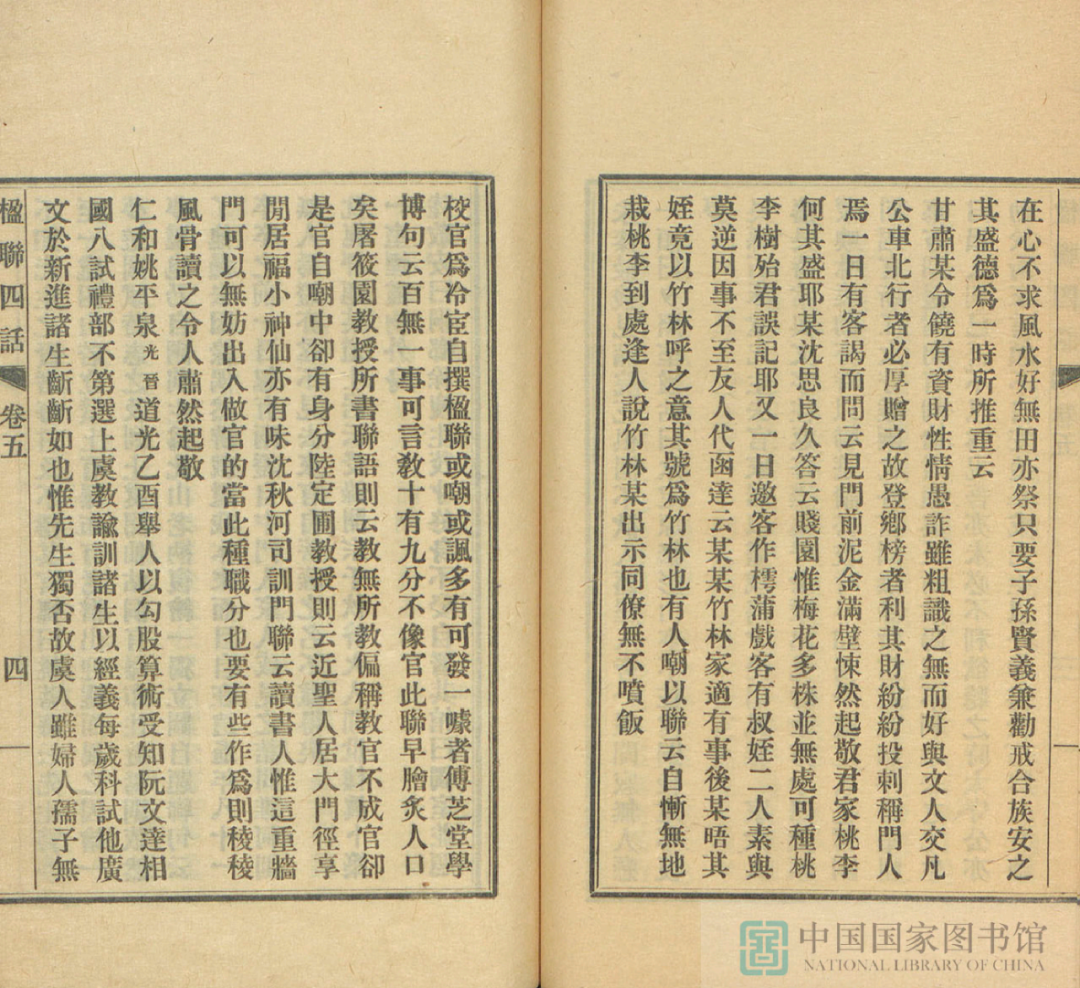 在心不求風水好無田亦祭只要子孫賢義兼勸戒合族安之
其盛德爲一時所推重云
甘肅某令饒有資財性情愚詐雖粗識之無而好與文人交凡
公車北行者必厚贈之故登鄉榜者利其財紛紛投刺稱門人
焉一日有客謁而問云見門前泥金滿壁悚然起敬君家桃李
何其盛耶某沈思良久答云賤園惟梅花多株並無處可種桃
李樹殆君誤記耶又一日邀客作樗蒲戲客有叔姪二人素與
莫逆因事不至友人代函達云某某竹林家適有事後某晤其
姪竟以竹林呼之意其號爲竹林也有人嘲以聯云自慚無地
栽桃李到處逢人說竹林某出示同僚無不噴飯
校官爲冷宦自撰楹聯或嘲或諷多有可發一噱者傅芝堂學
博句云百無一事可言教十有九分不像官此聯早膾炙人口
矣屠筱園教授所書聯語則云教無所教偏稱教官不成官卻
是官自嘲中卻有身分陸定圃教授則云近聖人居大門徑享
閒居福小神仙亦有味沈秋河司訓門聯云讀書人惟這重牆
門可以無妨出入做官的當此種職分也要有些作爲則稜稜
風骨讀之令人肅然起敬
仁和姚平泉光晉道光乙酉舉人以勾股算術受知阮文達相
國八試禮部不第選上虞教諭訓諸生以經義每歲科試他廣
文於新進諸生齗齗如也惟先生獨否故虞人雖婦人孺子無
楹聯四話 卷五 四
中国国家图书馆
NATIONAL LIBRARY OF CHINA